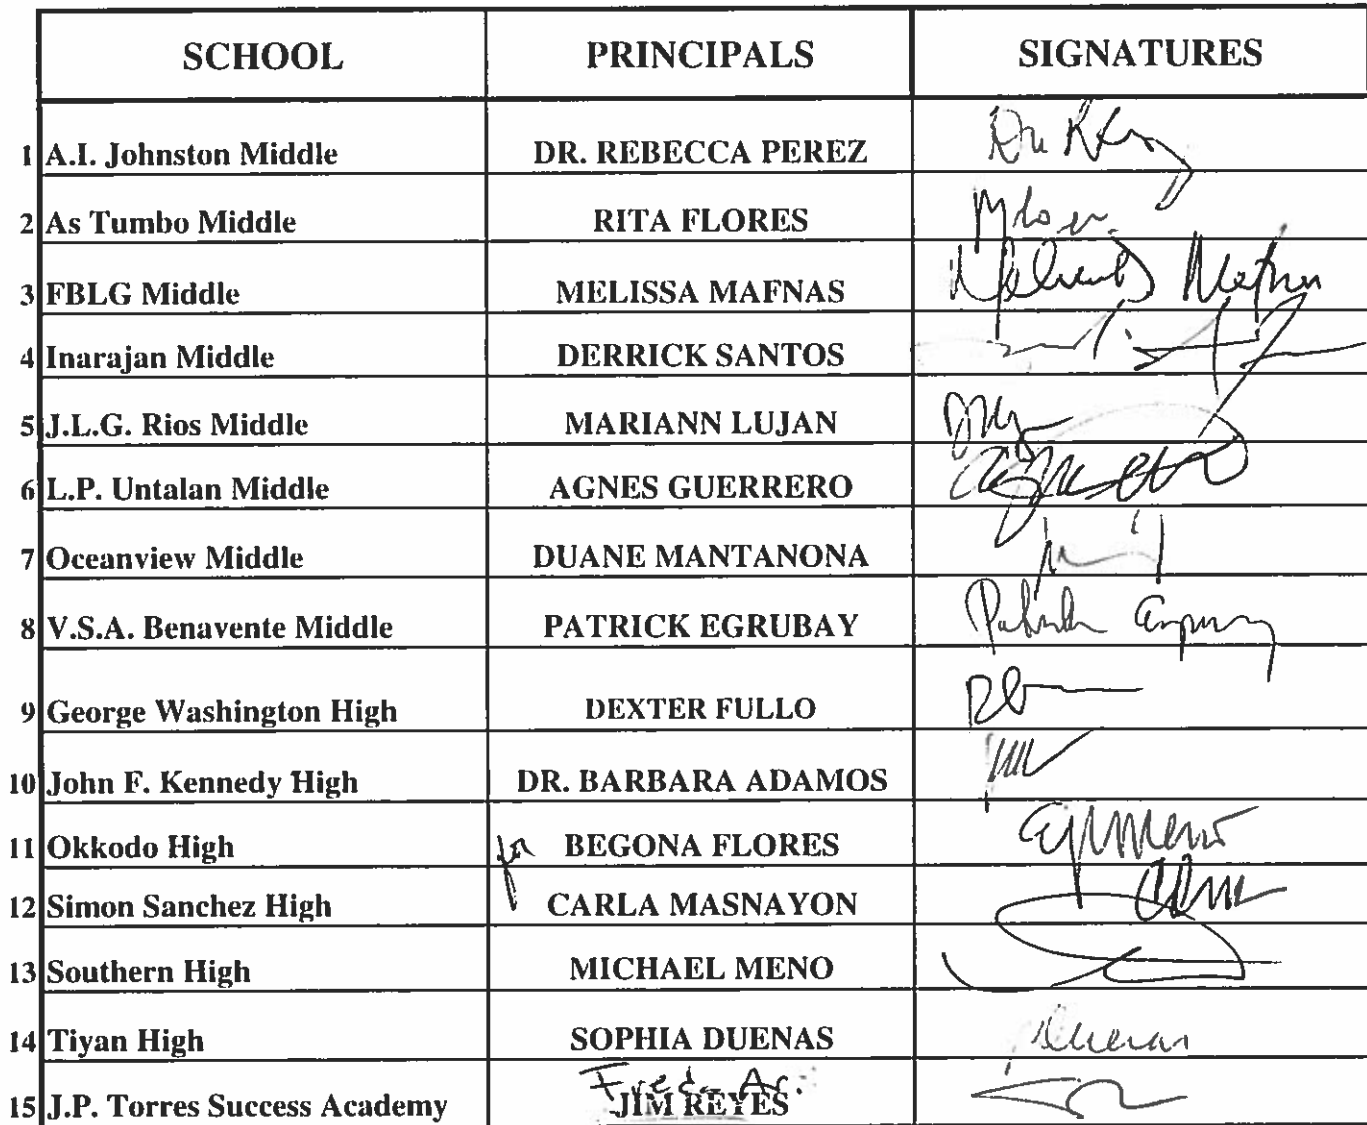 SCHOOL PRINCIPALS SIGNATURES
1 A.I. Johnston Middle DR. REBECCA PEREZ
2 As Tumbo Middle RITA FLORES
3 FBLG Middle MELISSA MAFNAS
4 Inarajan Middle DERRICK SANTOS
5 J.L.G. Rios Middle MARIANN LUJAN
6 L.P. Untalan Middle AGNES GUERRERO
7 Oceanview Middle DUANE MANTANONA
8 V.S.A. Benavente Middle PATRICK EGRUBAY
9 George Washington High DEXTER FULLO
10 John F. Kennedy High DR. BARBARA ADAMOS
11 Okkodo High for BEGONA FLORES
12 Simon Sanchez High CARLA MASNAYON
13 Southern High MICHAEL MENO
14 Tiyan High SOPHIA DUENAS Duenas
Fred
15 J.P. Torres Success Academy JIM REYES